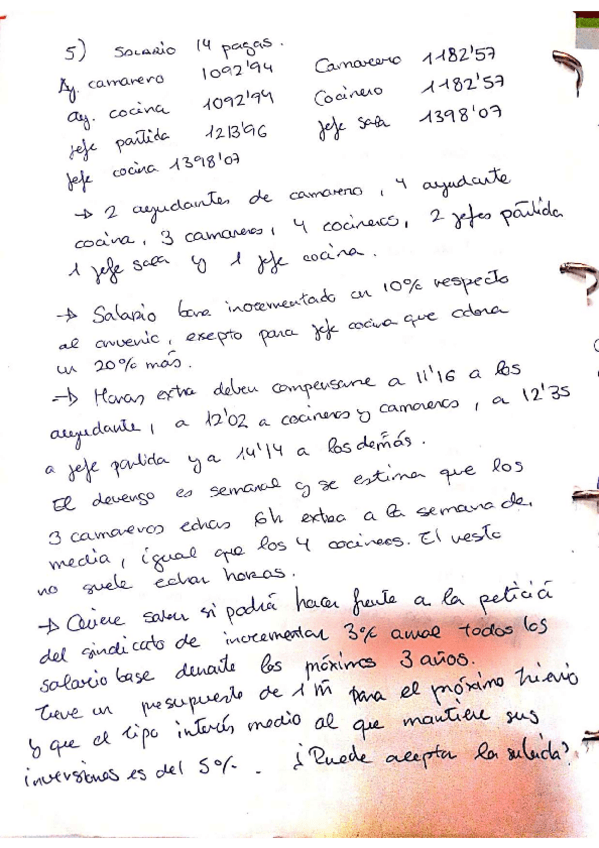 5) SALARIO 14 pagas.
Ay. camarero 1092'94 Camarero 1182'57
ay. cocina 1092'94 Cocinero 1182'57
jefe partida 1213'96 Jefe sala 1398'07
jefe cocina 1398'07
→ 2 ayudantes de camarero, 4 ayudante
cocina, 3 camareros, 4 cocineros, 2 jefes partida
1 jefe sala y 1 jefe cocina.
→ Salario base incrementado un 10% respecto
al convenio, exepto para jefe cocina que cobra
un 20% más.
→ Horas extra deben compensarse a 11'16 a los
ayudante, a 12'02 a cocineros y camareros, a 12'35
a jefe partida y a 14'14 a los demás.
El devengo es semanal y se estima que los
3 camareros echas 6h extra a la semana de
media, igual que los 4 cocineros. El resto
no suele echar horas.
→ Quiere saber si podrá hacer frente a la petició
del sindicato de incrementar 3% anual todos los
salario base durante los próximos 3 años.
Tiene un presupuesto de 1 m para el próximo trienio
y que el tipo interés medio al que mantiene sus
inversiones es del 5%. ¿Puede acepta la subida?